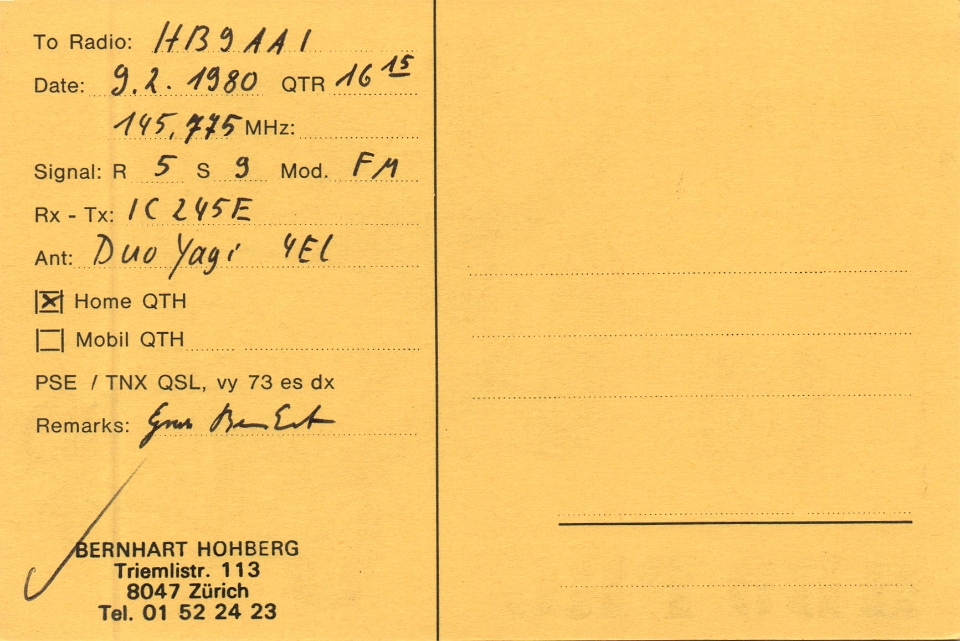 To Radio: HB9AAI
Date: 9.2.1980 QTR 16 15
145,775 MHz:
Signal: R 5 S 9 Mod. FM
Rx - Tx: IC 245E
Ant: Duo Yagi 4El
Home QTH
Mobil QTH
PSE / TNX QSL, vy 73 es dx
Remarks: Gruss
BERNHART HOHBERG
Triemlistr. 113
8047 Zürich
Tel. 01 52 24 23